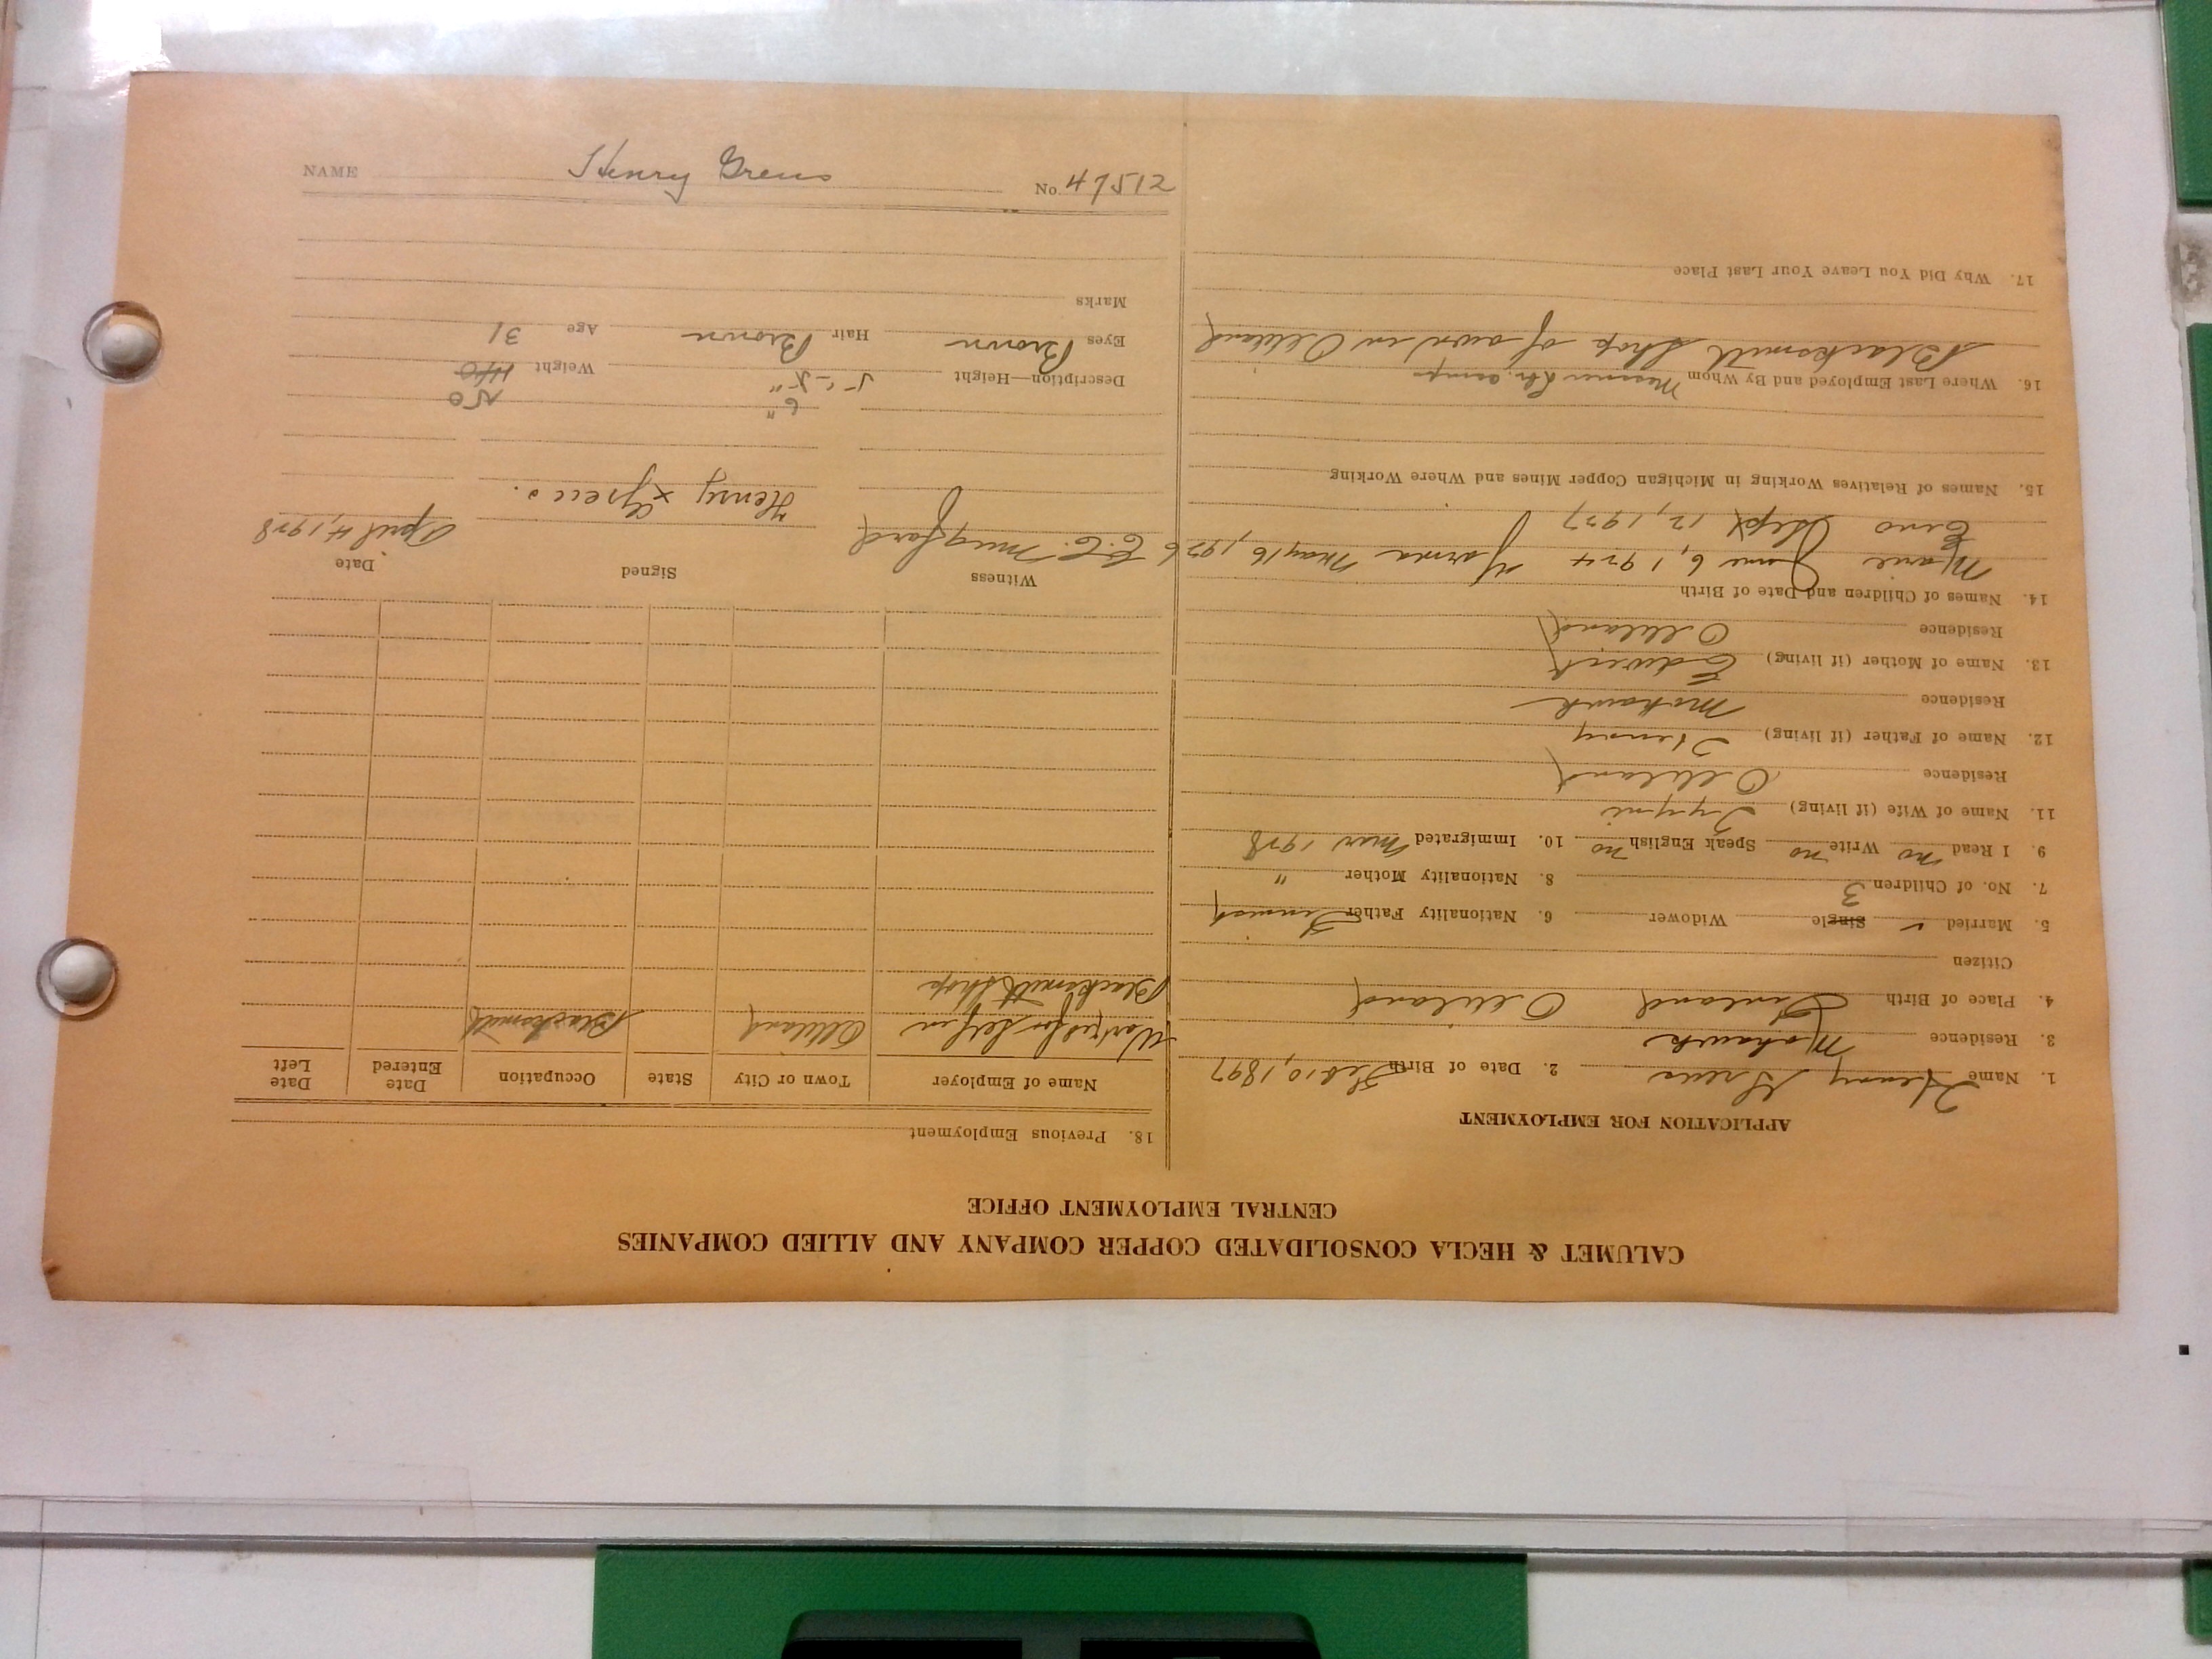 CALUMET & HECLA CONSOLIDATED COPPER COMPANY AND ALLIED COMPANIES
CENTRAL EMPLOYMENT OFFICE
APPLICATION FOR EMPLOYMENT
1. Name Henry Greus 2. Date of Birth Feb 10, 1897
3. Residence Mohawk
4. Place of Birth Finland
Citizen
5. Married ✓ Single Widower 6. Nationality Father Finnish
7. No. of Children 3 8. Nationality Mother "
9. I Read no Write no Speak English no 10. Immigrated Mar 1928
11. Name of Wife (if living)
Residence
12. Name of Father (if living) Henry
Residence Mohawk
13. Name of Mother (if living)
Residence
14. Names of Children and Date of Birth
Marie June 6, 1924 May 16, 1926
Eino Sept 12, 1927
15. Names of Relatives Working in Michigan Copper Mines and Where Working
16. Where Last Employed and By Whom
Blacksmith Shop of own in
17. Why Did You Leave Your Last Place
18. Previous Employment
Name of Employer Town or City State Occupation Date Entered Date Left
Worked for self in Blacksmith
Blacksmith Shop
Witness Signed Date
E. C. Mugford Henry x Greus. April 4, 1928
6" 150
Description—Height 5'-5" Weight 140
Eyes Brown Hair Brown Age 31
Marks
NAME Henry Greus No. 47512